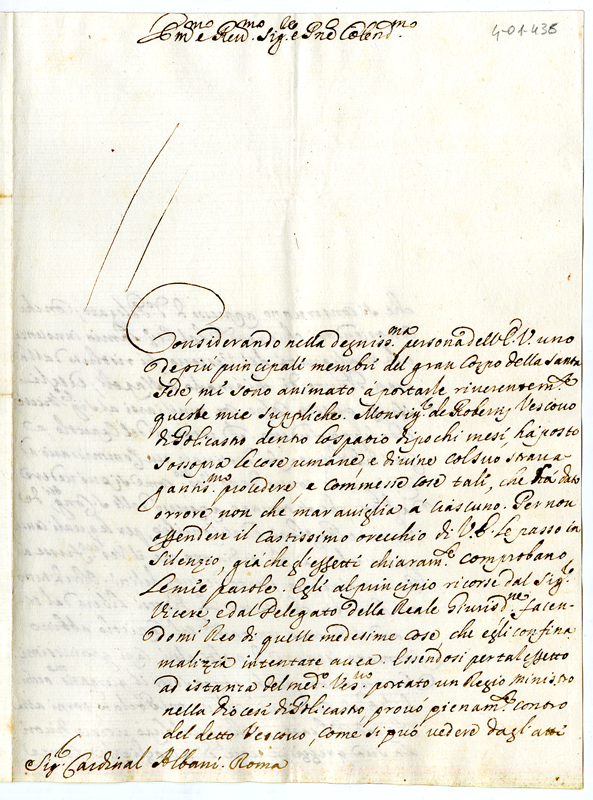 Em.mo e Rev.mo Sig.re e P.ne Colend.mo
4-01-436
Considerando nella degniss.ma persona dell'E.V. uno
de più principali membri del gran Corpo della Santa
Fede, mi sono animato à portarle riverentem.te
queste mie suppliche. Monsig.r de Robertis Vescovo
di Policastro dentro lo spatio di pochi mesi, hà posto
sossopra le cose umane, e divine col suo strava
gantis.mo procedere, e commesse cose tali, che hà dato
orrore, non che maraviglia à ciascuno. Per non
offendere il castissimo orecchio di V.E. le passo in
silenzio, già che gl'effetti chiaram.te comprobano
le mie parole. Egli al principio ricorse dal Sig.r
Vicerè, e dal Delegato della Reale Giurisd.ne, facen
domi Reo di quelle medesime cose, che egli con fina
malizia intentate avea. Essendosi per tal effetto
ad istanza del med.o Ves.vo portato un Regio Ministro
nella diocesi di Policastro, provò pienam.te contro
del detto Vescovo, come si può vedere dagl'atti
Sig.r Cardinal Albani. Roma